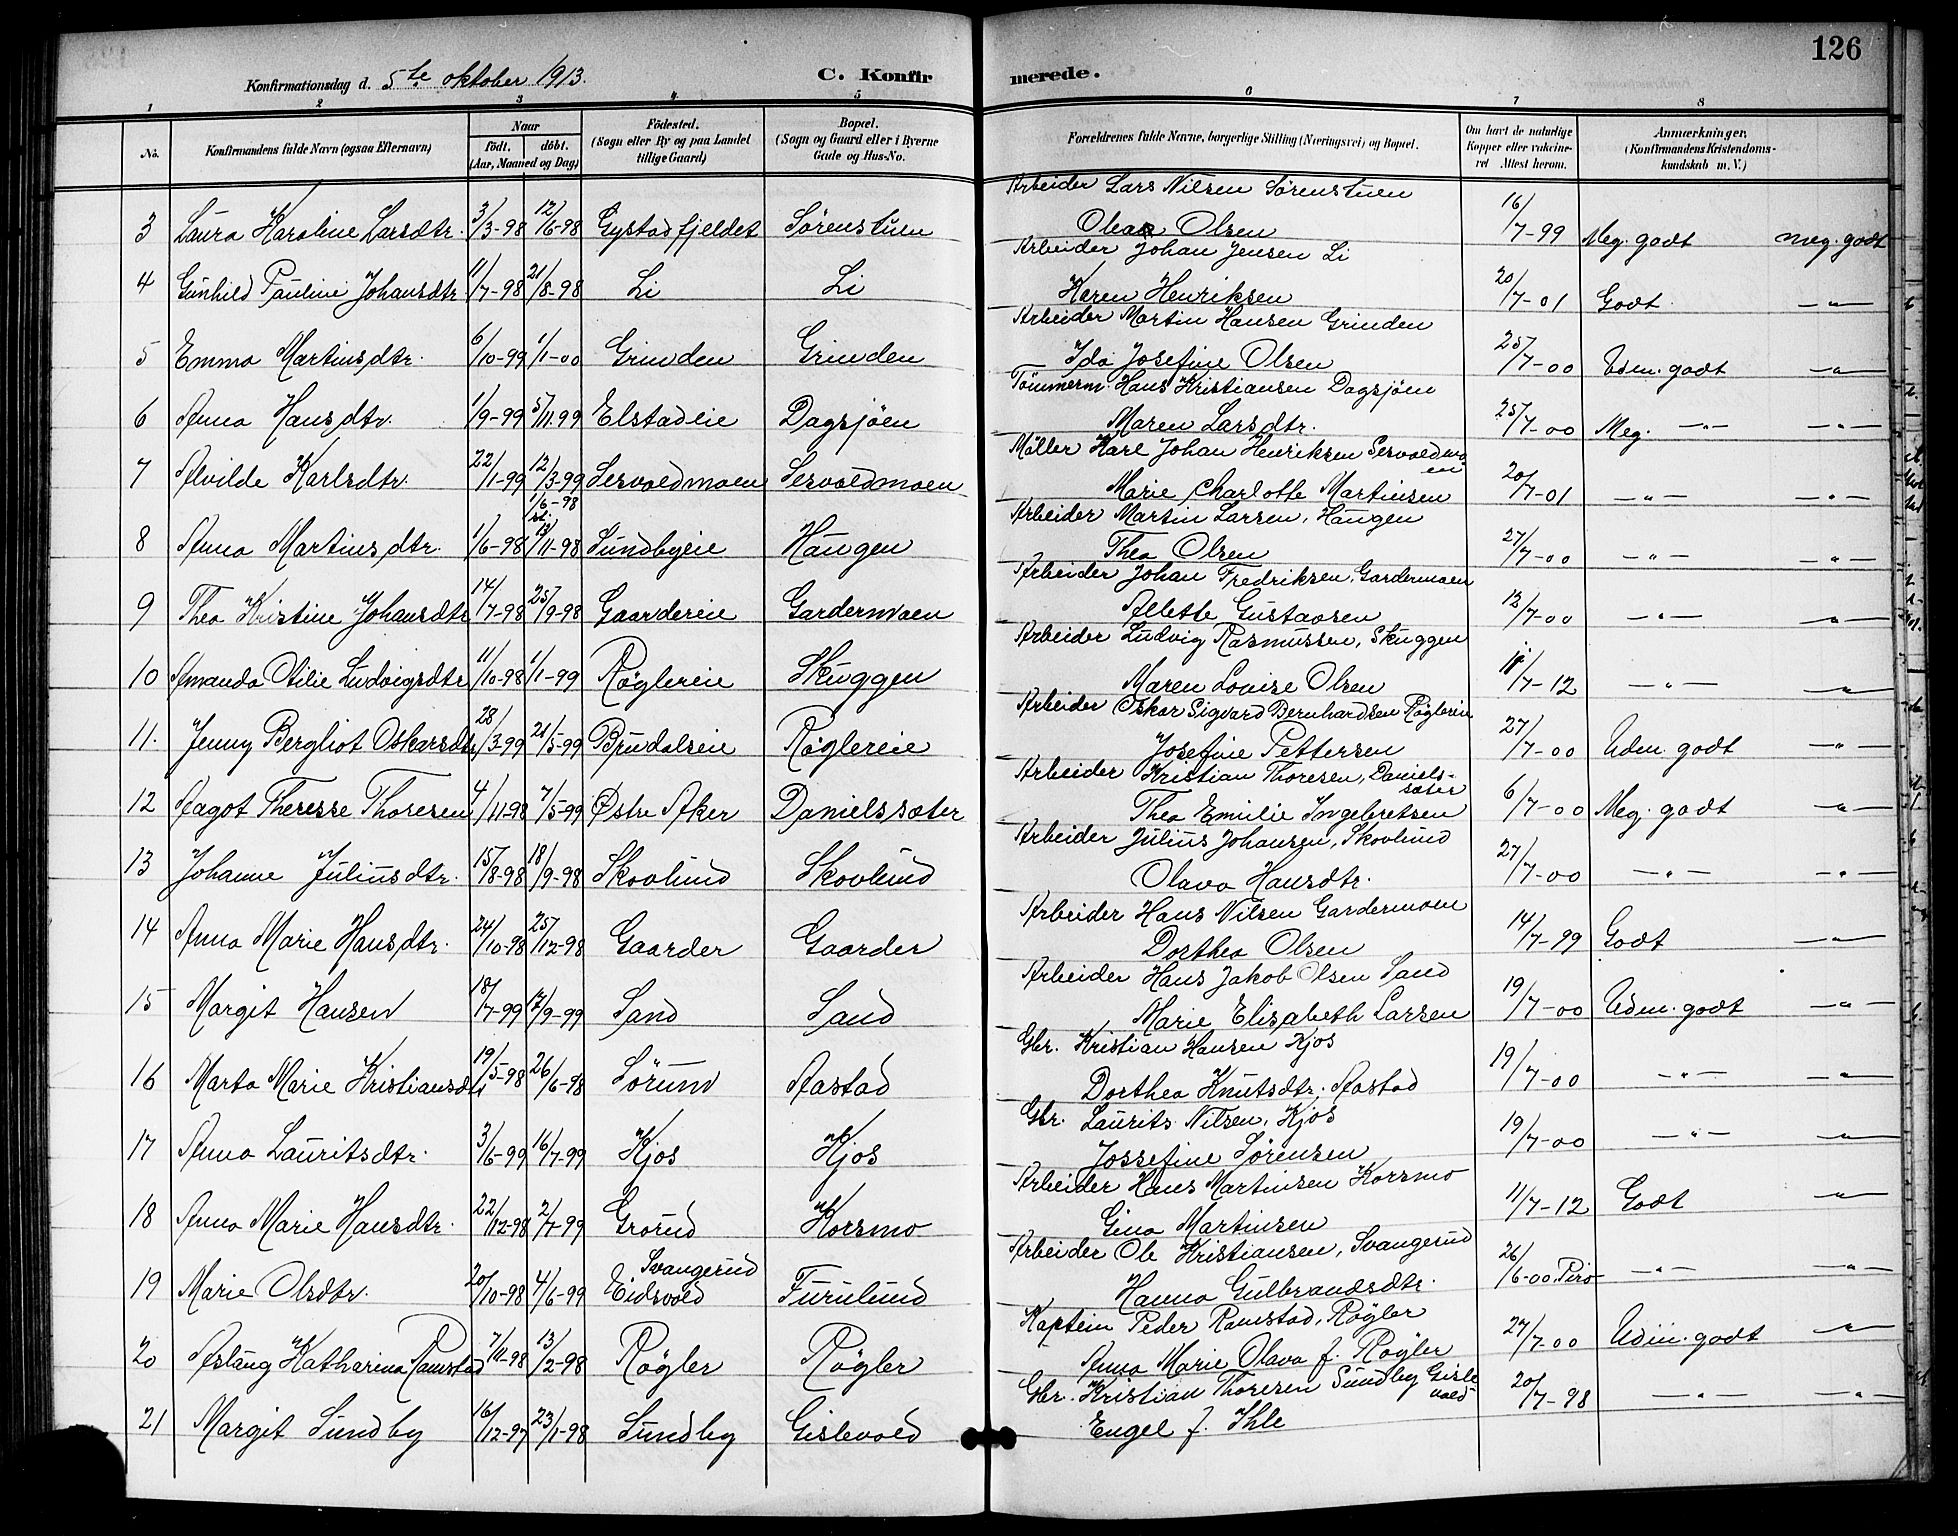 126
Konfirmationsdag d. 5te oktober 1913. C. Konfirmerede.
1 2 3 4 5 6 7 8
No. Konfirmandens fulde Navn (ogsaa Efternavn) Naar födt. döbt. (Aar, Maaned og Dag) Födested. (Sogn eller By og paa Landet tillige Gaard) Bopæl. (Sogn og Gaard eller i Byerne Gade og Hus-No. Forældrenes fulde Navne, borgerlige Stilling (Næringsvei) og Bopæl. Om havt de naturlige Kopper eller vaccineret Attest herom. Anmærkninger. (Konfirmandens Kristendomskundskab m. V.)
Arbeider Lars Nilsen Sørenstuen
3 Laura Karoline Larsdtr. 3/3-98 12/6-98 Gystadfjeldet Sørenstuen Olea Olsen 16/7-99 Meg. godt meg. godt
Arbeider Johan Jensen Li
4 Gunhild Pauline Johansdtr 11/7-98 21/8-98 Li Li Karen Henriksen 20/7-01 Godt —"—
Arbeider Martin Hansen Grinden
5 Emma Martinsdtr. 6/10-99 1/1-00 Grinden Grinden Ida Josefine Olsen 25/7-00 Udm. godt —"—
Tömmerm. Hans Kristiansen Dagsjøen
6 Anna Hansdtr. 1/9-99 5/11.99 Elstadeie Dagsjøen Maren Larsdtr. 25/7-00 Meg. —"— —"—
Møller Karl Johan Henriksen Servoldmoen
7 Alvilde Karlsdtr. 22/1-99 12/3-99 Servoldmoen Servoldmoen Marie Charlotte Martinsen 20/7-01 —"— —"—
1/6-98
Arbeider Martin Larsen, Haugen
8 Anna Martinsdtr. 1/6-98 13/11-98 Sundbyeie Haugen Thea Olsen 27/7-00 —"— —"—
Arbeider Johan Fredriksen, Gardermoen
9 Thea Kristine Johansdtr 14/7-98 25/9-98 Gaardereie Gardermoen Allette Gustavsen 12/7-00 —"— —"—
Arbeider Ludvig Rasmussen, Skuggen
10 Amanda Otilie Ludvigsdtr 11/10-98 1/1-99 Røglereie Skuggen Maren Lovise Olsen 11/7-12 —"— —"—
Arbeider Oskar Sigvard Bernhardsen Røglereie
11. Jenny Bergliot Oskarsdtr 28/3-99 21/5-99 Bjrudalseie Røglereie Josefine Pettersen 27/7-00 Udm. godt —"—
Arbeider Kristian Thoresen, Danielssæter
12 Aagot Theresse Thoresen 4/11-98 7/5-99 Østre Aker Danielssæter Thea Emilie Ingebretsen 6/7-00 Meg. godt —"—
Arbeider Julius Johansen, Skovlund
13 Johanne Juliusdtr. 15/8-98 18/9-98 Skovlund Skovlund Olava Hansdtr. 27/7-00 —"— —"—
Arbeider Hans Nilsen Gardermoen
14 Anna Marie Hansdtr. 24/10-98 25/12-98 Gaarder Gaarder Dorthea Olsen 14/7-99 Godt —"—
Arbeider Hans Jakob Olsen Sand
15 Margit Hansen 18/7-99 17/9-99 Sand Sand Marie Elisabeth Larsen 19/7-00 Udm. godt —"—
Gbr. Kristian Hansen Kjos
16 Marta Marie Kristiansdtr 19/5-98 26/6-98 Sørum Aastad Dorthea Knutsdtr. Aastad 19/7-00 —"— —"—
Gbr. Laurits Nilsen, Kjos
17 Anna Lauritsdtr. 3/6-99 16/7-99 Kjos Kjos Jossefine Sørensen 19/7-00 —"— —"—
Arbeider Hans Martinsen Korsmo
18 Anna Marie Hansdtr. 22/12-98 2/7-99 Grorud Korsmo Gina Martinsen 11/7-12 Godt —"—
Arbeider Ole Kristiansen, Svangerud
19 Marie Olsdtr. 20/10-98 4/6-99 Svangerud Eidsvold Furulund Hanna Gulbrandsdtr. 26/6-00 Piro —"— —"—
Kaptein Peder Ramstad, Røgler
20 Aslaug Katharina Ramstad 7/11-98 13/12-98 Røgler Røgler Anna Marie Olava f. Røgler 27/7-00 Udm. godt —"—
Gbr. Kristian Thoresen Sundby Gislevold
21 Margit Sundby 16/12-97 23/1-98 Sundby Gislevold Engel f. Ihle 20/7-98 —"— —"—